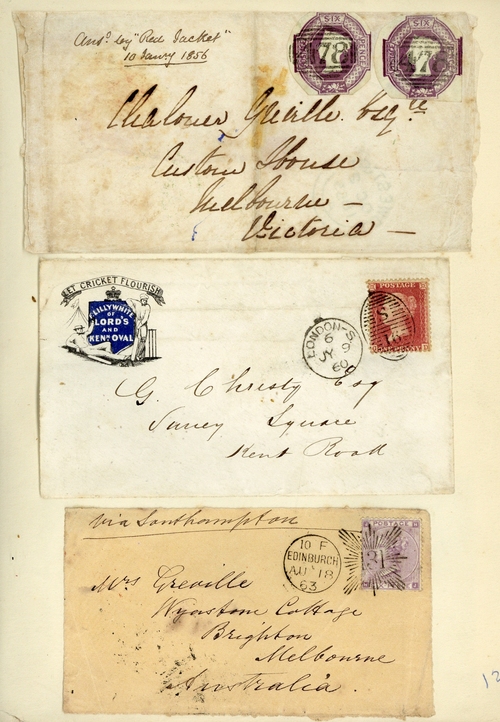 Ansd. by "Red Jacket"
10 Jany 1856
SIX
SIX
78
78
Chaloner Greville Esqre
Custom House
Melbourne —
Victoria —
LET CRICKET FLOURISH
LILLYWHITE
OF
LORD'S
AND
KENN. OVAL
POSTAGE
S
LONDON-S
6
JY 9
60
G. Christy Esq
Surrey Square
Kent Road
via Southampton
POSTAGE
10 F
EDINBURGH
AU 18
63
131
Mrs Greville
Wynstone Cottage
Brighton
Melbourne
Australia.
12